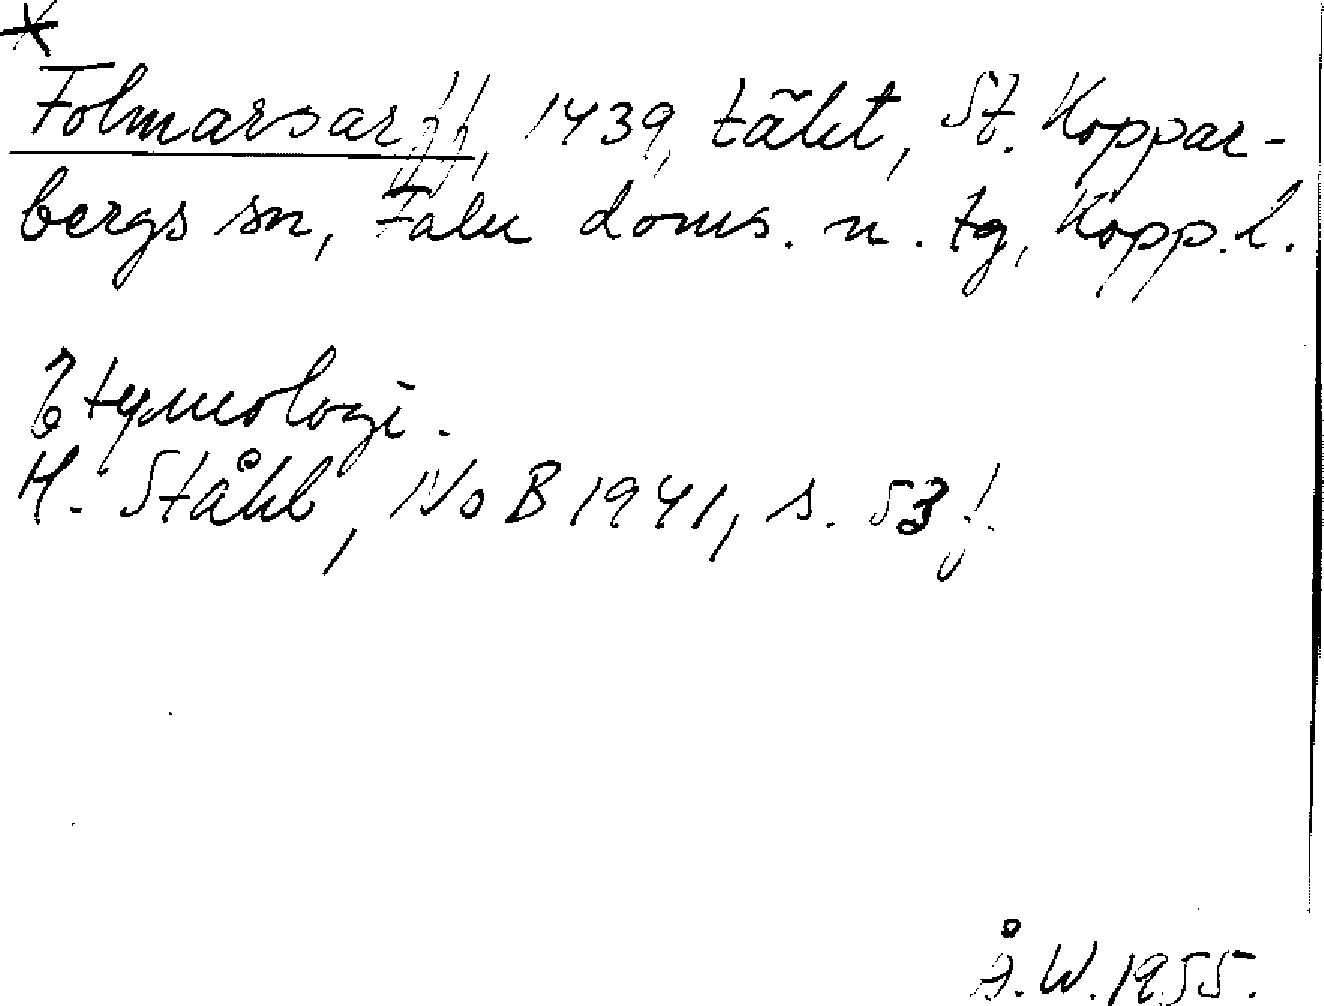 *
Folmarsarff, 1439, täkt, St. Koppar-
bergs sn, Falu doms. n. tg, Kopp. l.
Etymologi.
H. Ståhl, NoB 1941, s. 53 f.
Å. W. 1955.